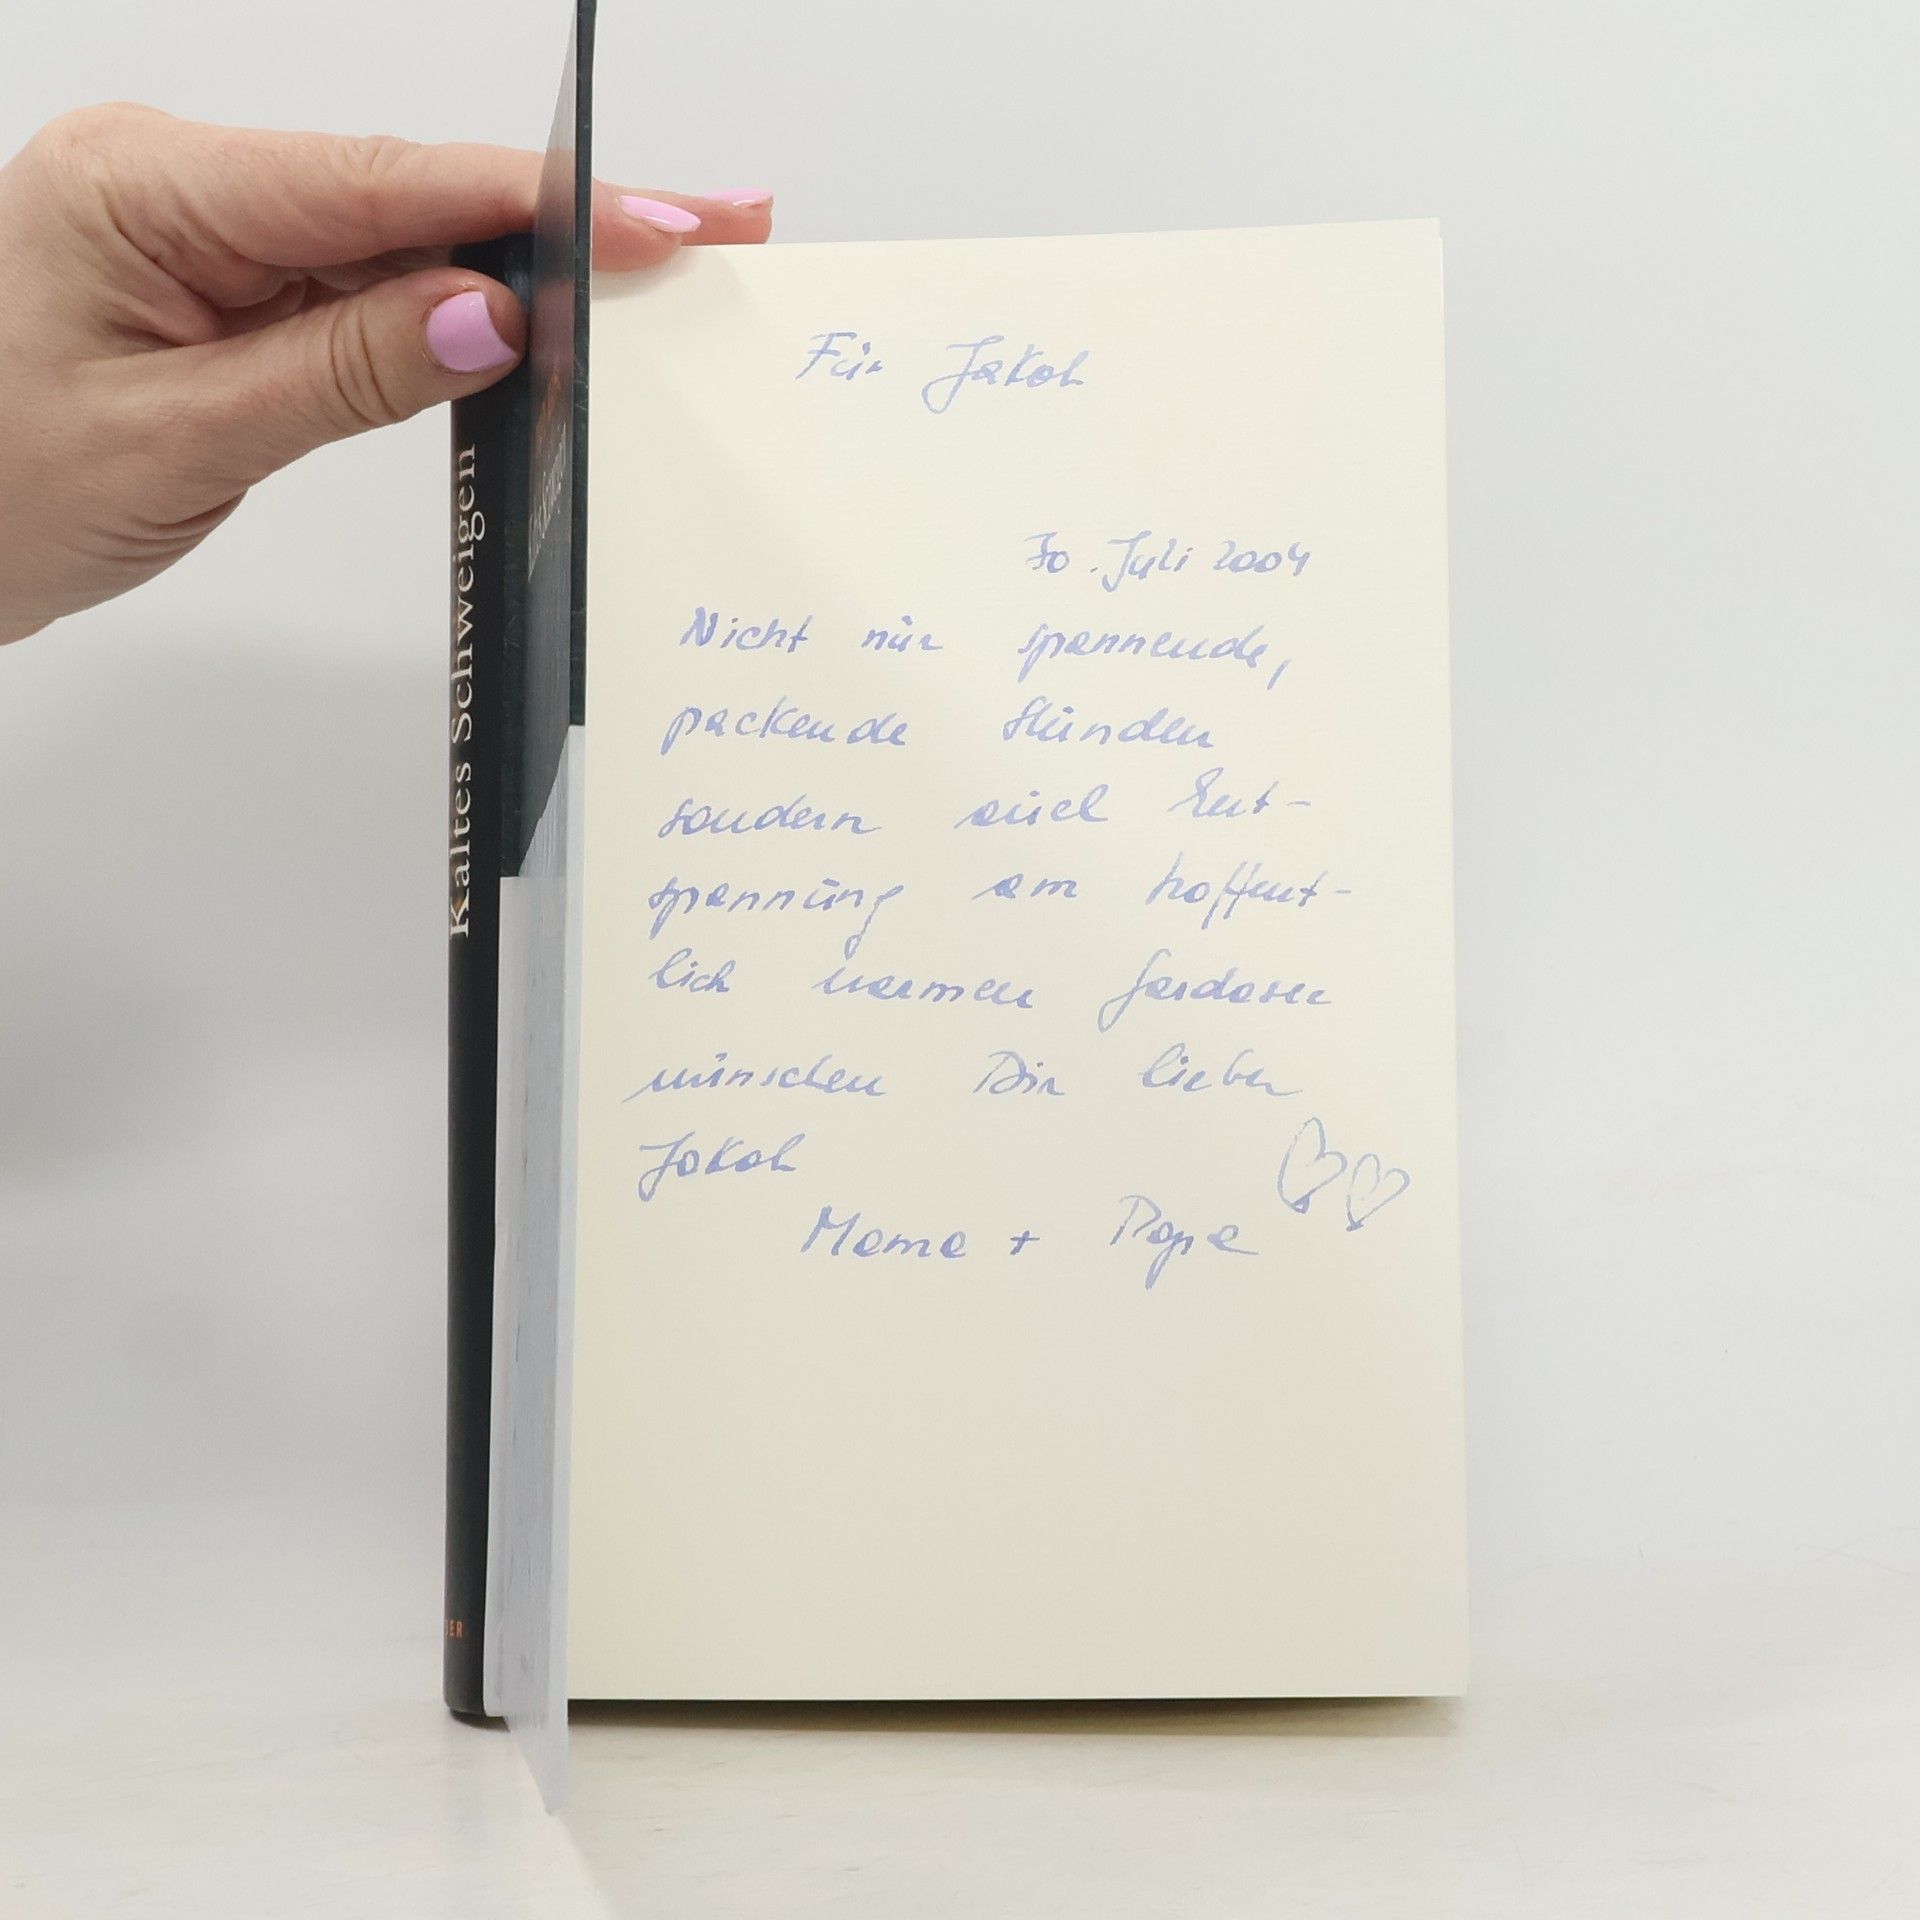 Kaltes Schweigen
Für Jakob
30. Juli 2004
Nicht nur spannende,
packende Stunden
sondern auch Ent-
spannung am hoffent-
lich warmen Gardasee
wünschen Dir lieber
Jakob
Mama + Papa